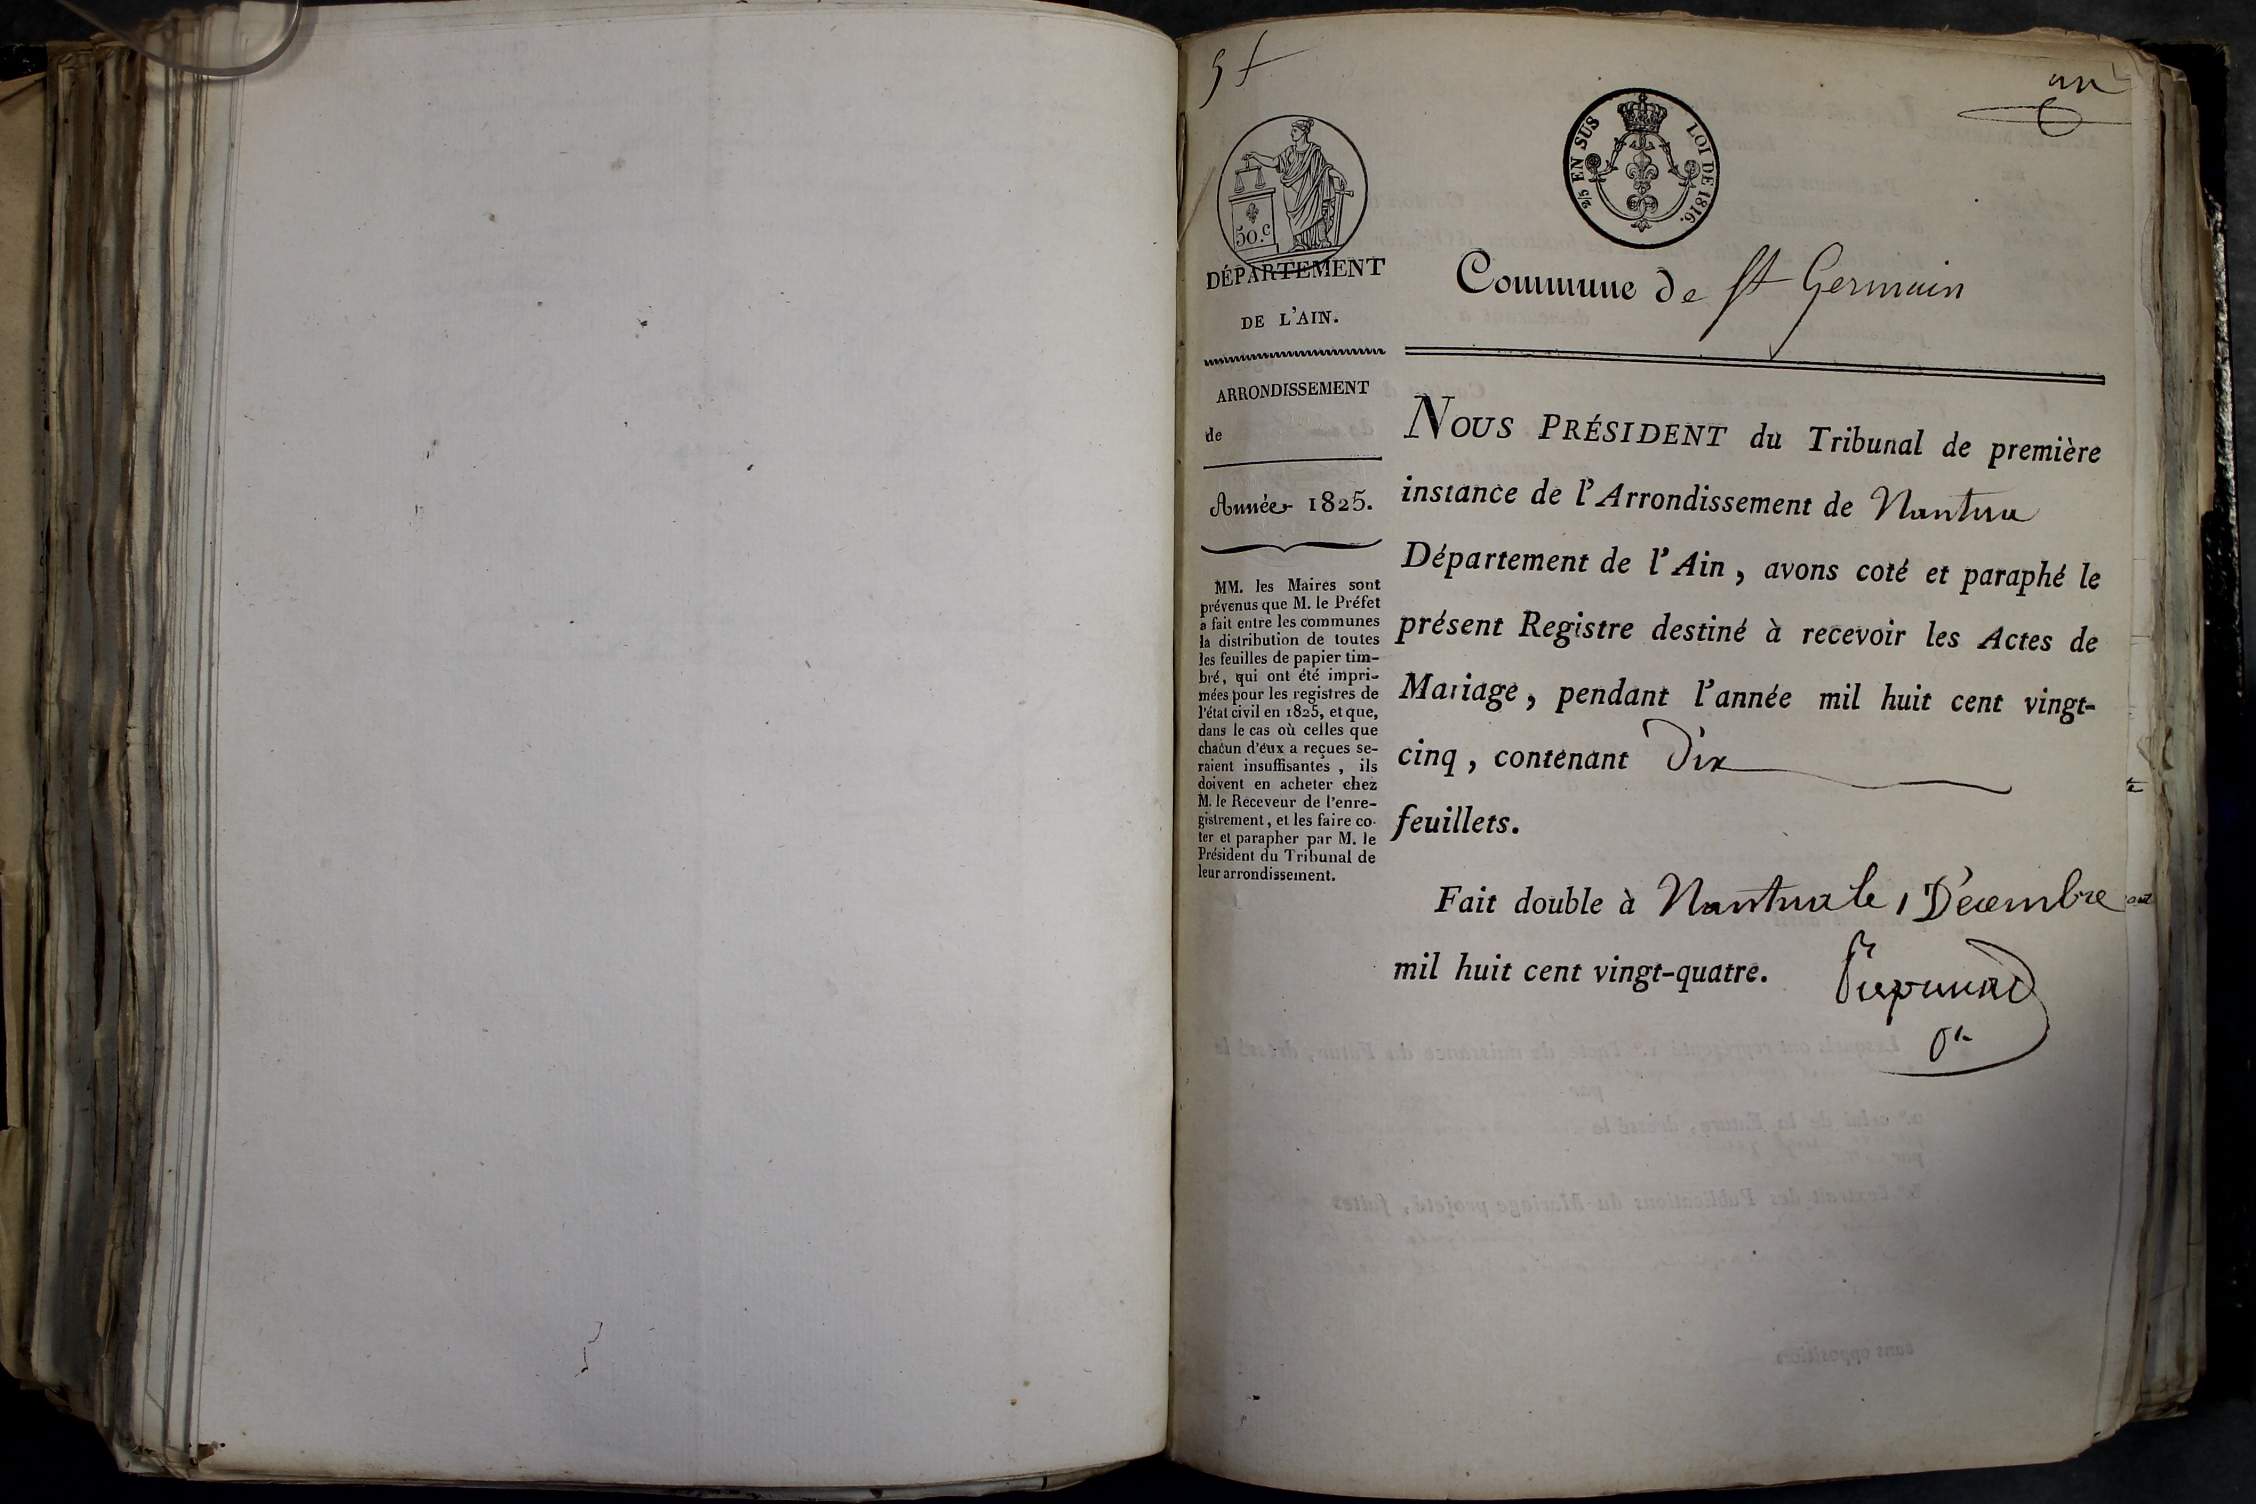 5 f
un
2/5 EN SUS LOI DE 1816.
50.c
DÉPARTEMENT
DE L'AIN.
ARRONDISSEMENT
de
Année 1825.
MM. les Maires sont
prévenus que M. le Préfet
a fait entre les communes
la distribution de toutes
les feuilles de papier tim-
bré, qui ont été impri-
mées pour les registres de
l'état civil en 1825, et que,
dans le cas où celles que
chacun d'eux a reçues se-
raient insuffisantes, ils
doivent en acheter chez
M. le Receveur de l'enre-
gistrement, et les faire co-
ter et parapher par M. le
Président du Tribunal de
leur arrondissement.
Commune de St Germain
NOUS PRÉSIDENT du Tribunal de première
instance de l'Arrondissement de Nantua
Département de l'Ain, avons coté et paraphé le
présent Registre destiné à recevoir les Actes de
Mariage, pendant l'année mil huit cent vingt-
cinq, contenant Dix
feuillets.
Fait double à Nantua le 1 Décembre
mil huit cent vingt-quatre.